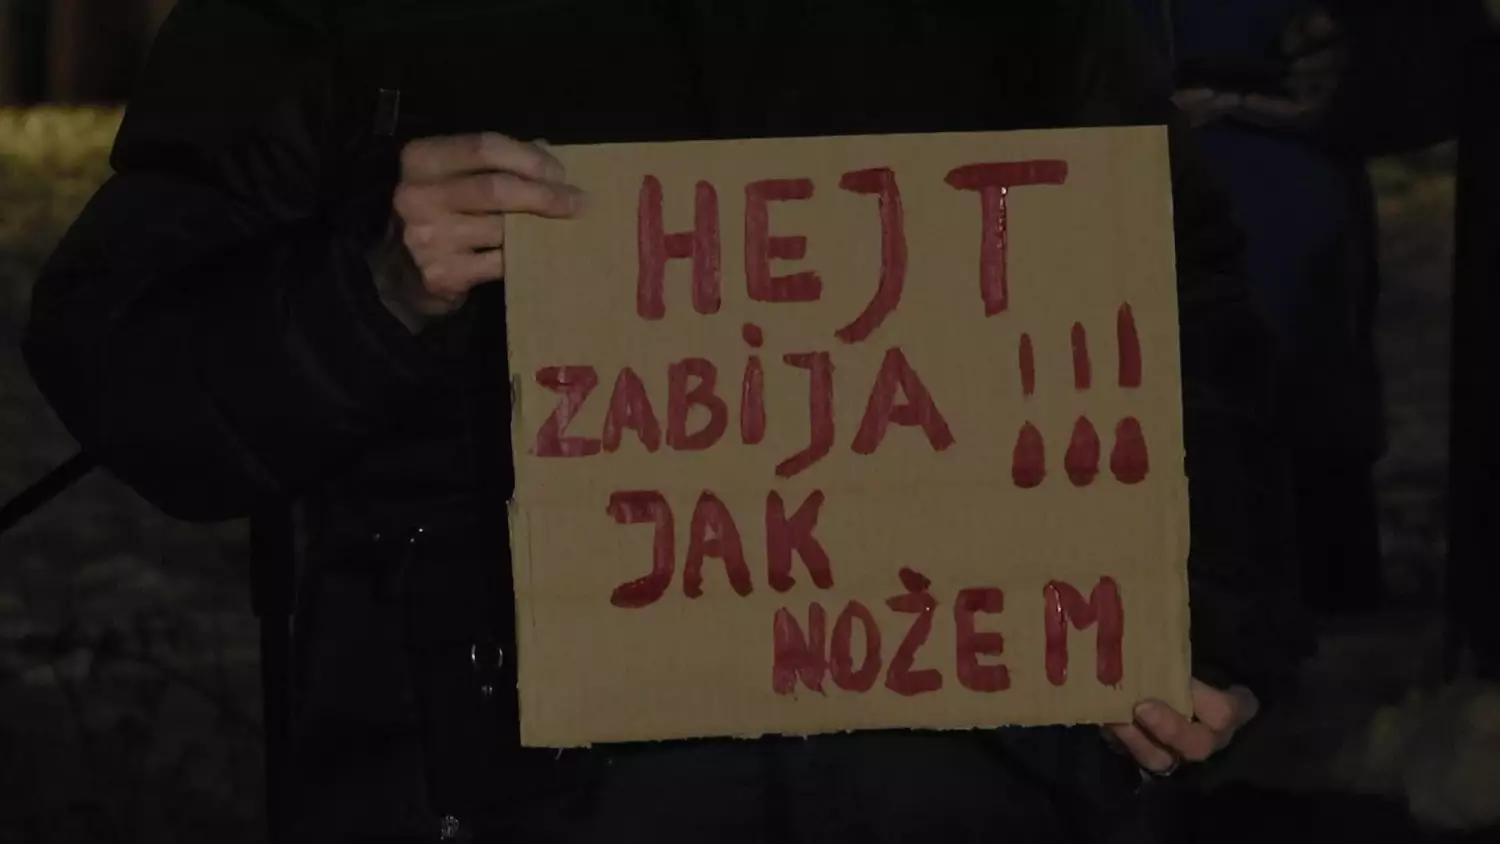 HEJT
ZABiJA !!!
JAK
NOŻEM